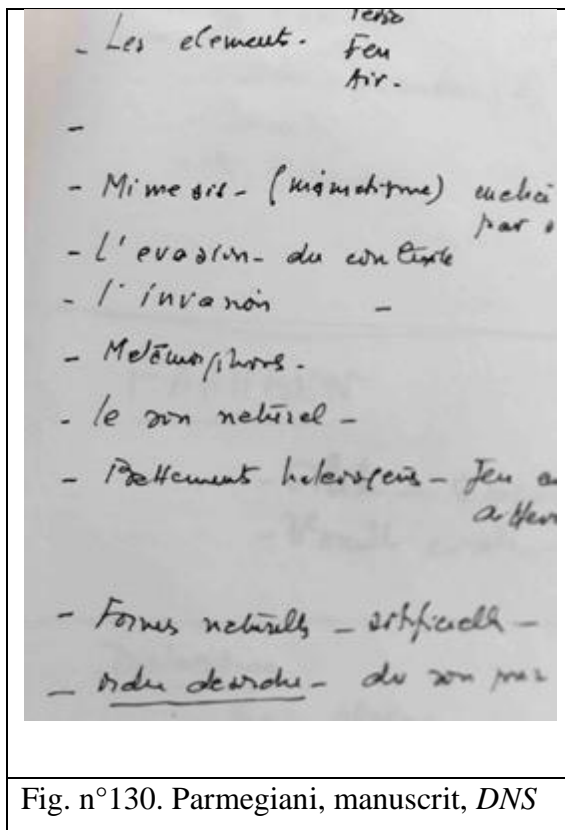 Terre
- Les elements. Feu
Air.
-
- Mimesis - (mimetisme)
par
- L'evasion - du contexte
- l'invasion -
- Metamorphoses.
- le son naturel -
- Battements heterogènes - Jeu
- Formes naturelles - artificielles -
- ordre desordre - du son par
Fig. n°130. Parmegiani, manuscrit, DNS